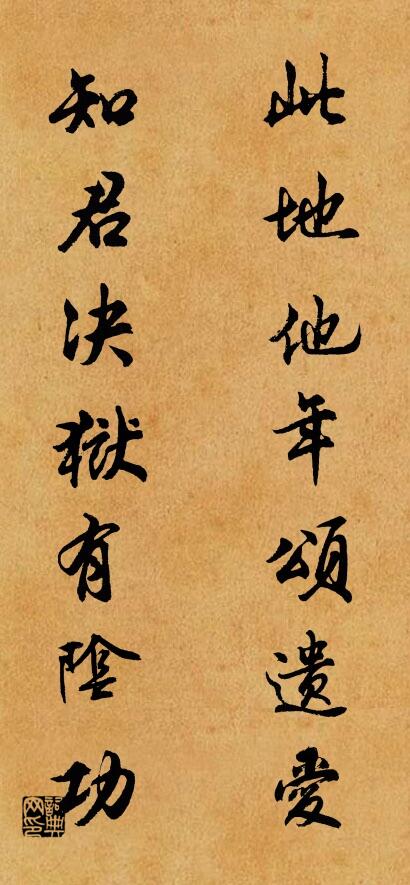 此地他年頌遺愛
知君決獄有陰功